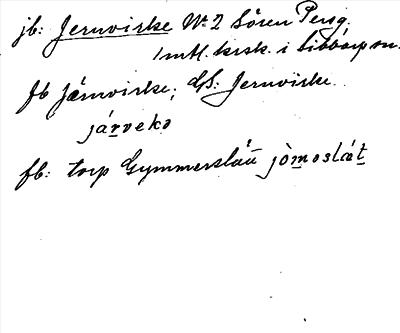 jb: Jernvirke № 2 Sören Peng.
1 mtl. krsk. i Libbarp sn.
fb Järnvirke; GS: Jernvirke.
járveko
fb: torp Gymmerslätt jòmoslát